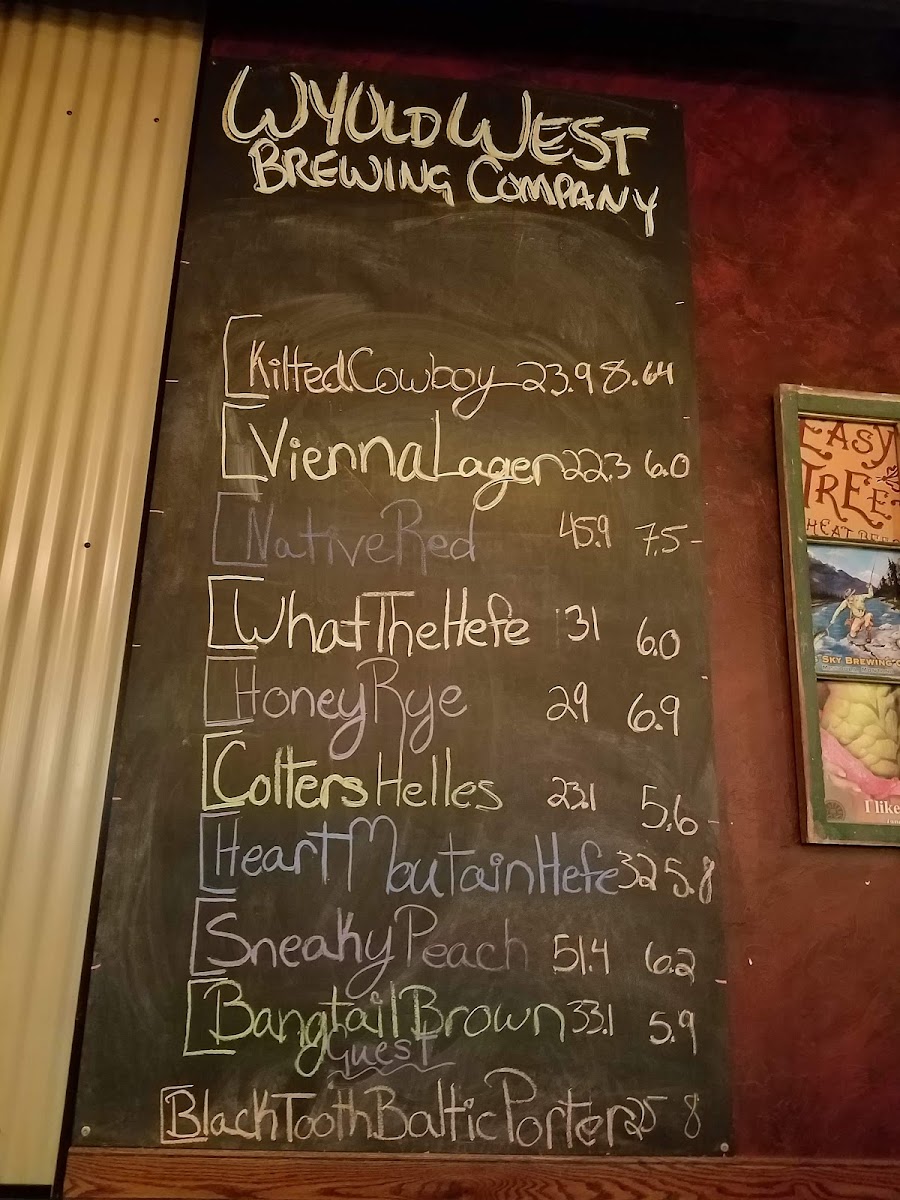 WYOLD WEST
BREWING COMPANY
Kilted Cowboy 23.9 8.64
Vienna Lager 22.3 6.0
Native Red 45.9 7.5
What The Hefe 31 6.0
Honey Rye 29 6.9
Colters Helles 23.1 5.6
Heart Moutain Hefe 32 5.8
Sneaky Peach 51.4 6.2
Bangtail Brown 33.1 5.9
Guest
Black Tooth Baltic Porter 25 8
EASY
TREE
SKY BREWING
I like